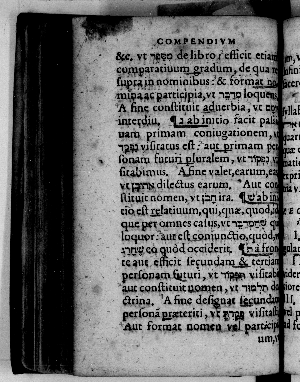 COMPENDIVM
&c, vt מספר de libro: efficit etiam
comparatiuum gradum, de qua re
supra in nominibus: & format no
mina ac participia, vt מדבר loquens.
A fine constituit aduerbia, vt יומם
interdiu. נ ab initio facit passi
uam primam coniugationem, vt
נפקד visitatus est: aut primam per
sonam futuri pluralem, vt נפקוד vi
sitabimus. A fine valet, earum, ea
vt dilectus earum. Aut con
stituit nomen, vt ira. ש ab ini
tio est relatiuum, qui, quæ, quod,
que per omnes casus, vt qui
loquor: aut est coniunctio, quod, vt
eò quòd occiderit. ת à fron
te aut efficit secundam & tertiam
personam futuri, vt תפקוד visitabis
aut constituit nomen, vt תלמוד do
ctrina. A fine designat secundam
personā præteriti, vt פקדת visitasti
Aut format nomen vel participi
um,